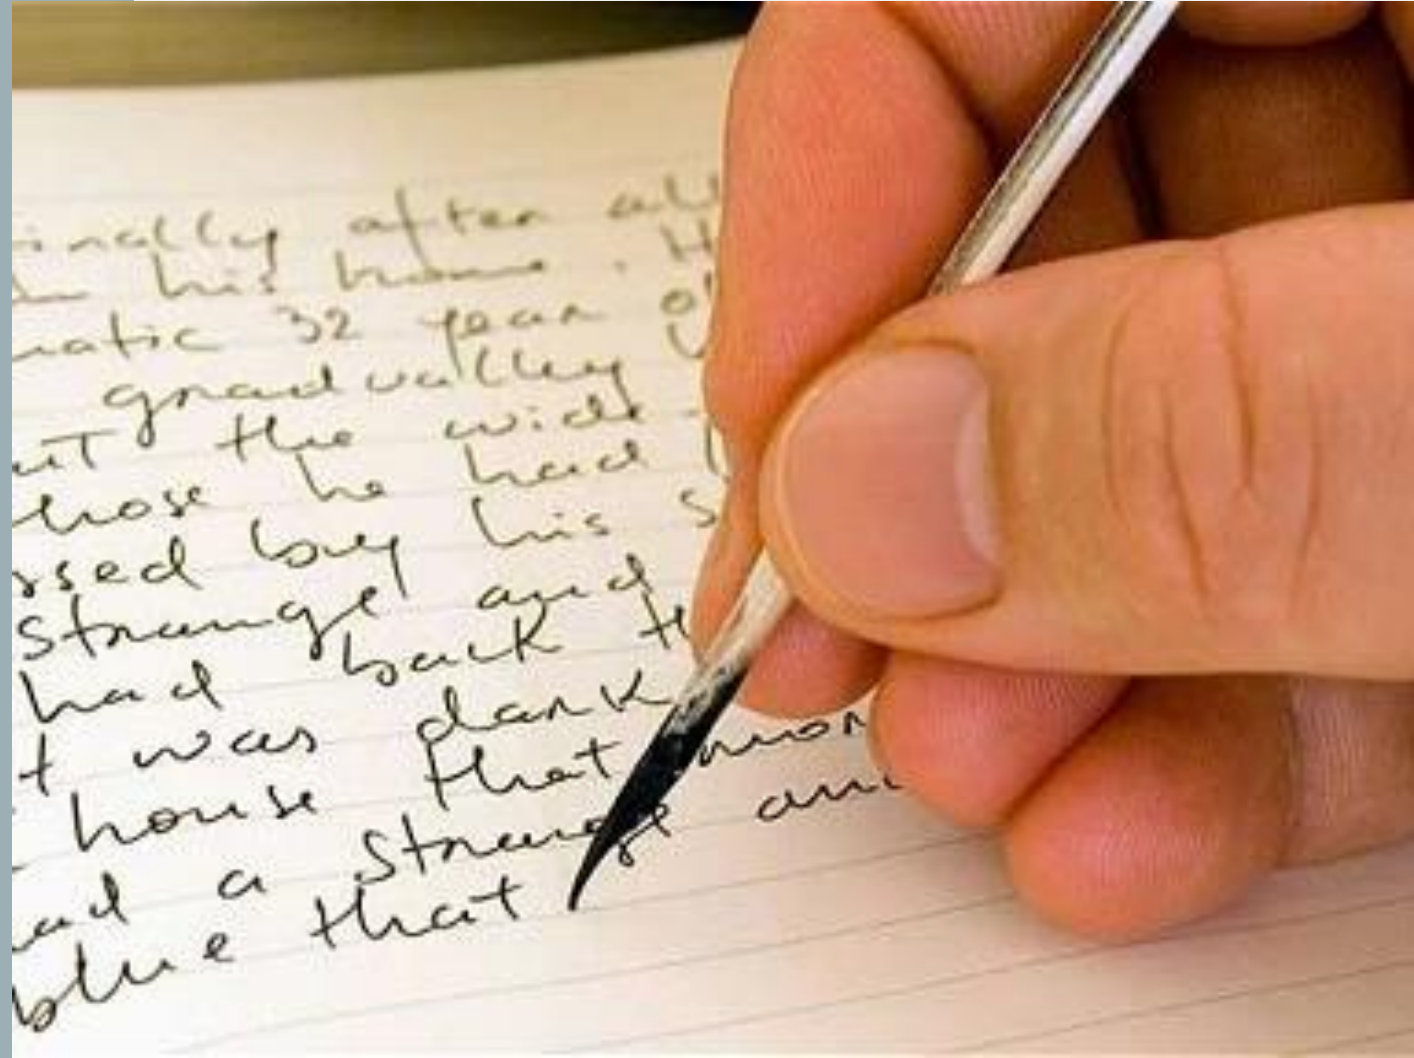 inally after all
his home. H
matic 32 year
gradually
ut the wide
hose he had
ssed buy his s
strange and
had back th
t was dark
house that mor
ad a strange and
blue that